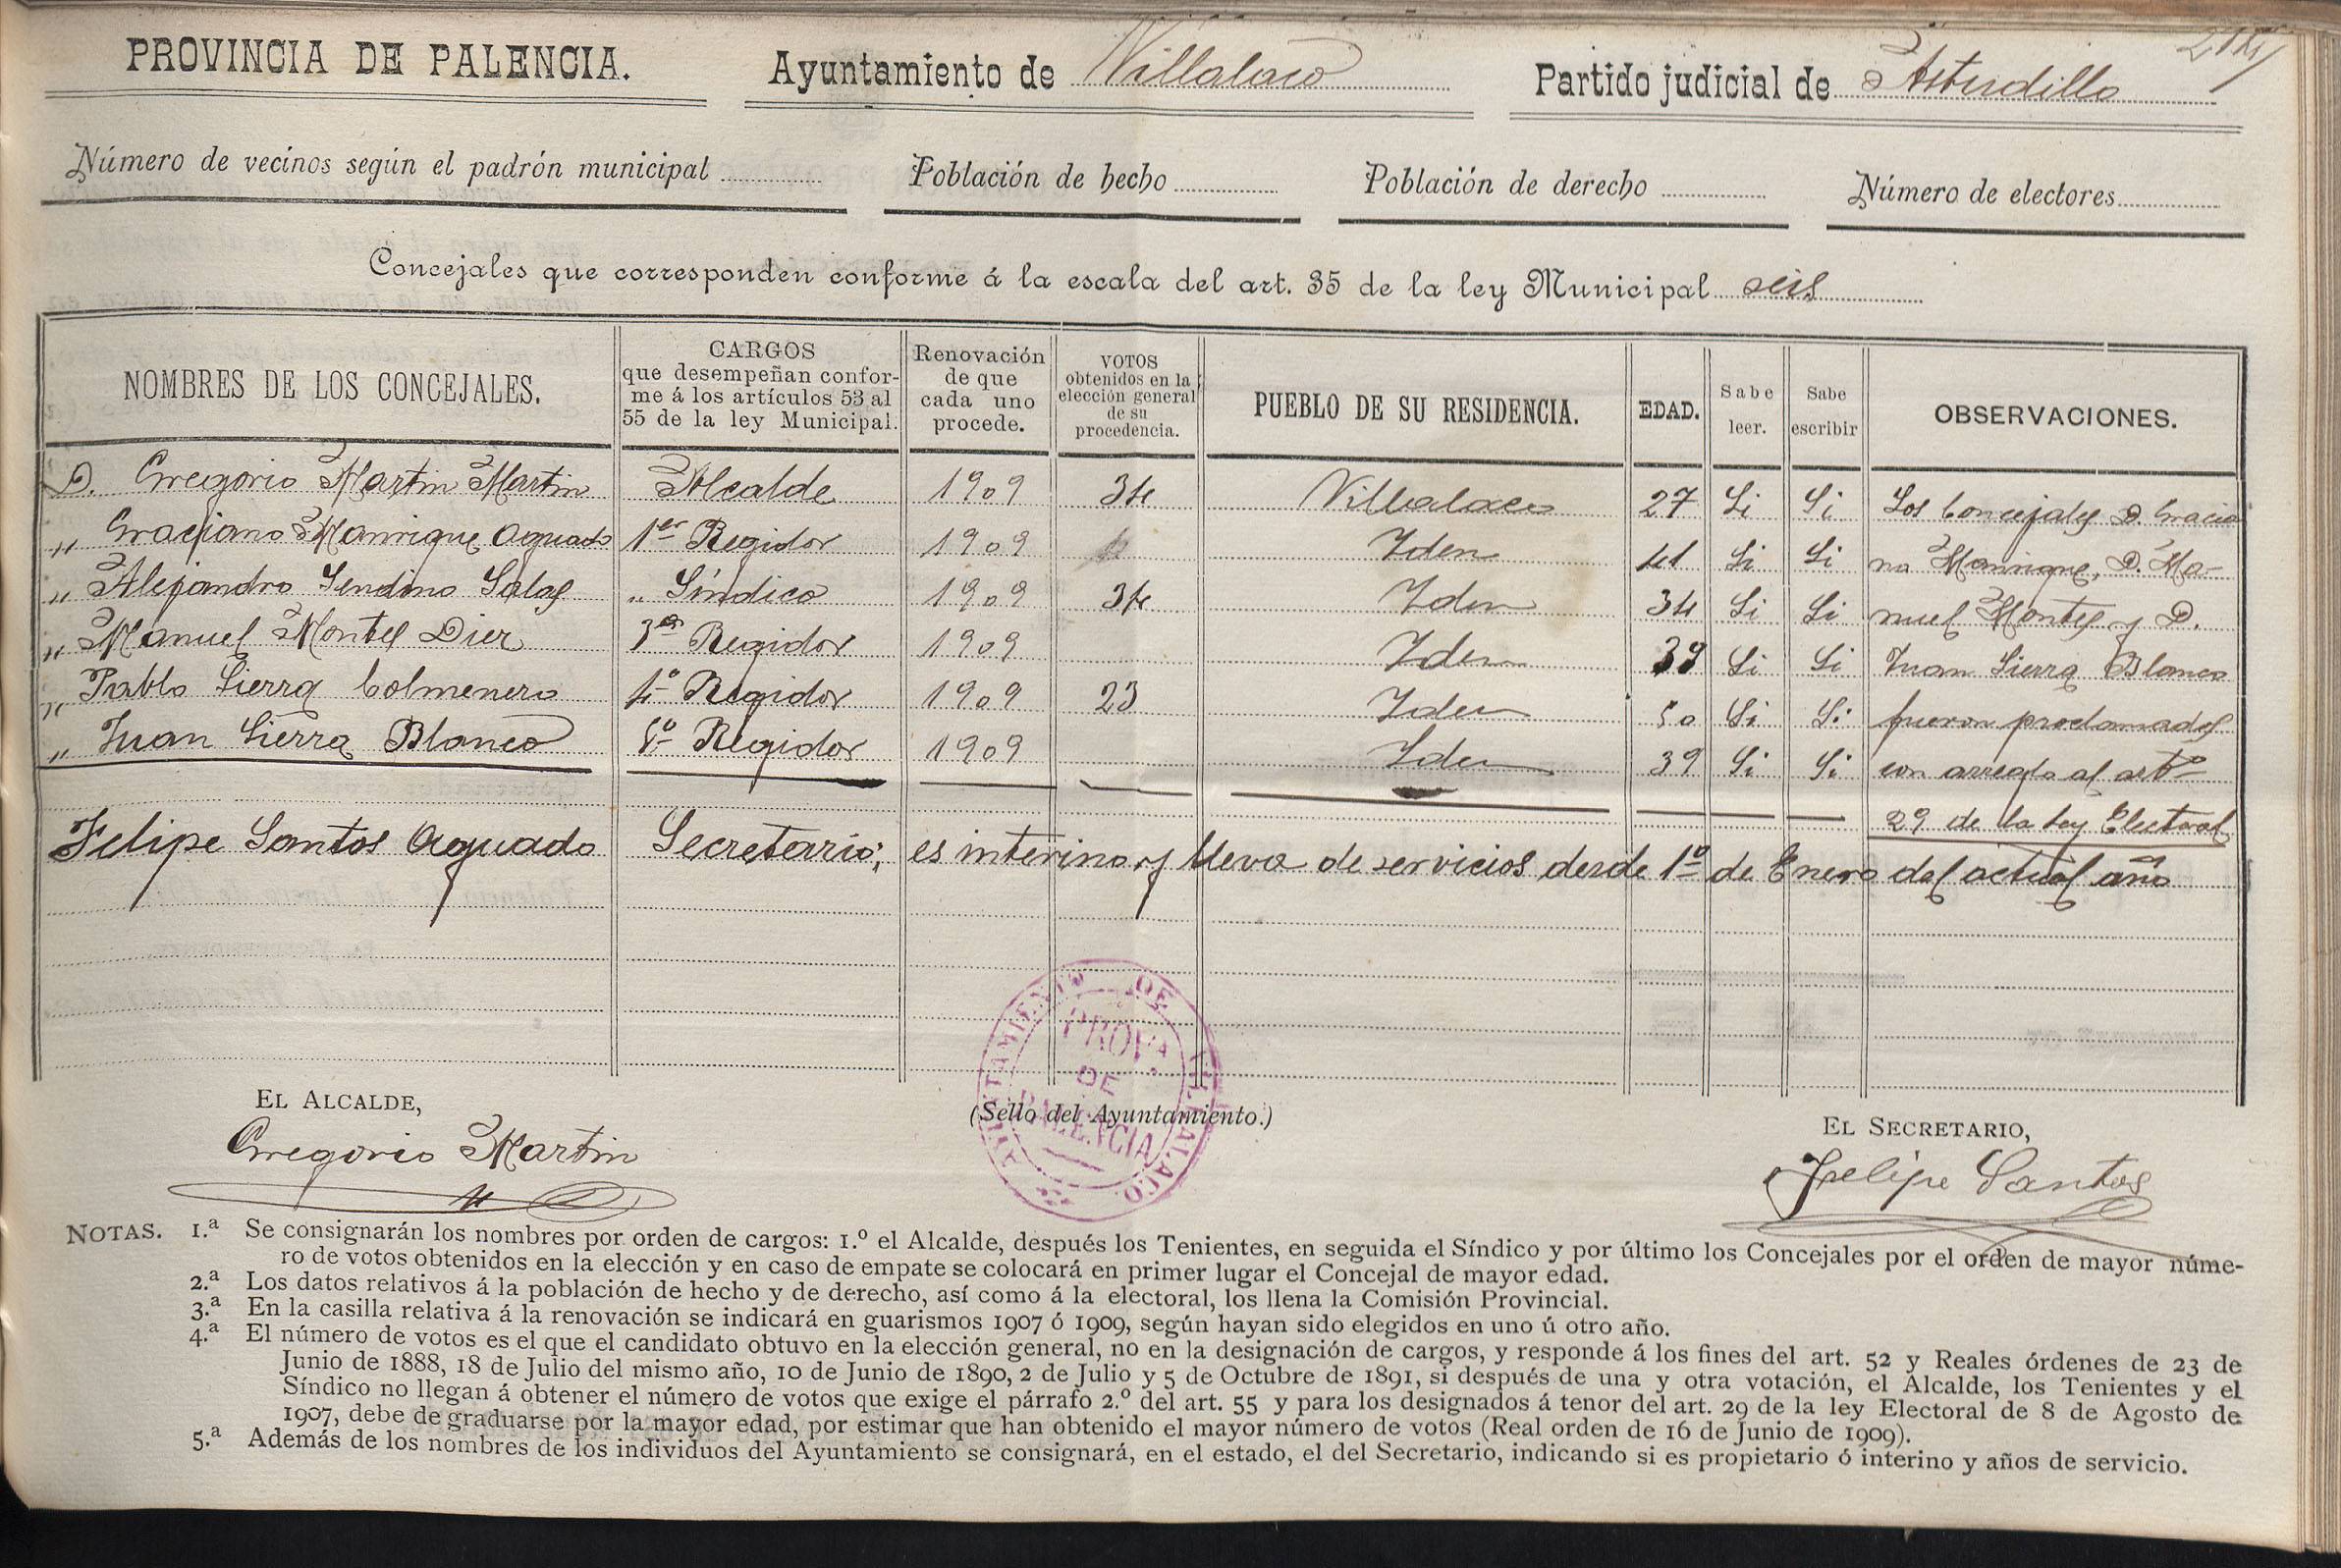 PROVINCIA DE PALENCIA. Ayuntamiento de Villalaco Partido judicial de Astudillo
Número de vecinos según el padrón municipal Población de hecho Población de derecho Número de electores
Concejales que corresponden conforme á la escala del art. 35 de la ley Municipal seis
NOMBRES DE LOS CONCEJALES.
CARGOS
que desempeñan confor-
me á los artículos 53 al
55 de la ley Municipal.
Renovación
de que
cada uno
procede.
VOTOS
obtenidos en la
elección general
de su
procedencia.
PUEBLO DE SU RESIDENCIA.
EDAD.
Sabe
leer.
Sabe
escribir
OBSERVACIONES.
D. Gregorio Martin Martin Alcalde 1909 34 Villalaco 27 Si Si Los Concejales D. Gracia
„ Graciano Manrique Aguado 1er Regidor 1909 Iden 41 Si Si no Manrique, D. Ma-
„ Alejandro Sendino Salas „ Síndico 1909 34 Iden 34 Si Si nuel Montes y D.
„ Manuel Montes Dier 3er Regidor 1909 Iden 39 Si Si Juan Sierra Blanco
„ Pablo Sierra Colmenero 4º Regidor 1909 23 Iden 50 Si Si fueron proclamados
„ Juan Sierra Blanco 5º Regidor 1909 Iden 39 Si Si con arreglo al artº
29 de la ley Electoral
Felipe Santos Aguado Secretario; es interino y lleva de servicios desde 1º de Enero del actual año
AYUNTAMIENTO DE VILLALACO
PROVA.
DE
PALENCIA
EL ALCALDE,
Gregorio Martin
(Sello del Ayuntamiento.)
EL SECRETARIO,
Felipe Santos
NOTAS. 1.ª Se consignarán los nombres por orden de cargos: 1.º el Alcalde, después los Tenientes, en seguida el Síndico y por último los Concejales por el orden de mayor núme-
ro de votos obtenidos en la elección y en caso de empate se colocará en primer lugar el Concejal de mayor edad.
2.ª Los datos relativos á la población de hecho y de derecho, así como á la electoral, los llena la Comisión Provincial.
3.ª En la casilla relativa á la renovación se indicará en guarismos 1907 ó 1909, según hayan sido elegidos en uno ú otro año.
4.ª El número de votos es el que el candidato obtuvo en la elección general, no en la designación de cargos, y responde á los fines del art. 52 y Reales órdenes de 23 de
Junio de 1888, 18 de Julio del mismo año, 10 de Junio de 1890, 2 de Julio y 5 de Octubre de 1891, si después de una y otra votación, el Alcalde, los Tenientes y el
Síndico no llegan á obtener el número de votos que exige el párrafo 2.º del art. 55 y para los designados á tenor del art. 29 de la ley Electoral de 8 de Agosto de
1907, debe de graduarse por la mayor edad, por estimar que han obtenido el mayor número de votos (Real orden de 16 de Junio de 1909).
5.ª Además de los nombres de los individuos del Ayuntamiento se consignará, en el estado, el del Secretario, indicando si es propietario ó interino y años de servicio.